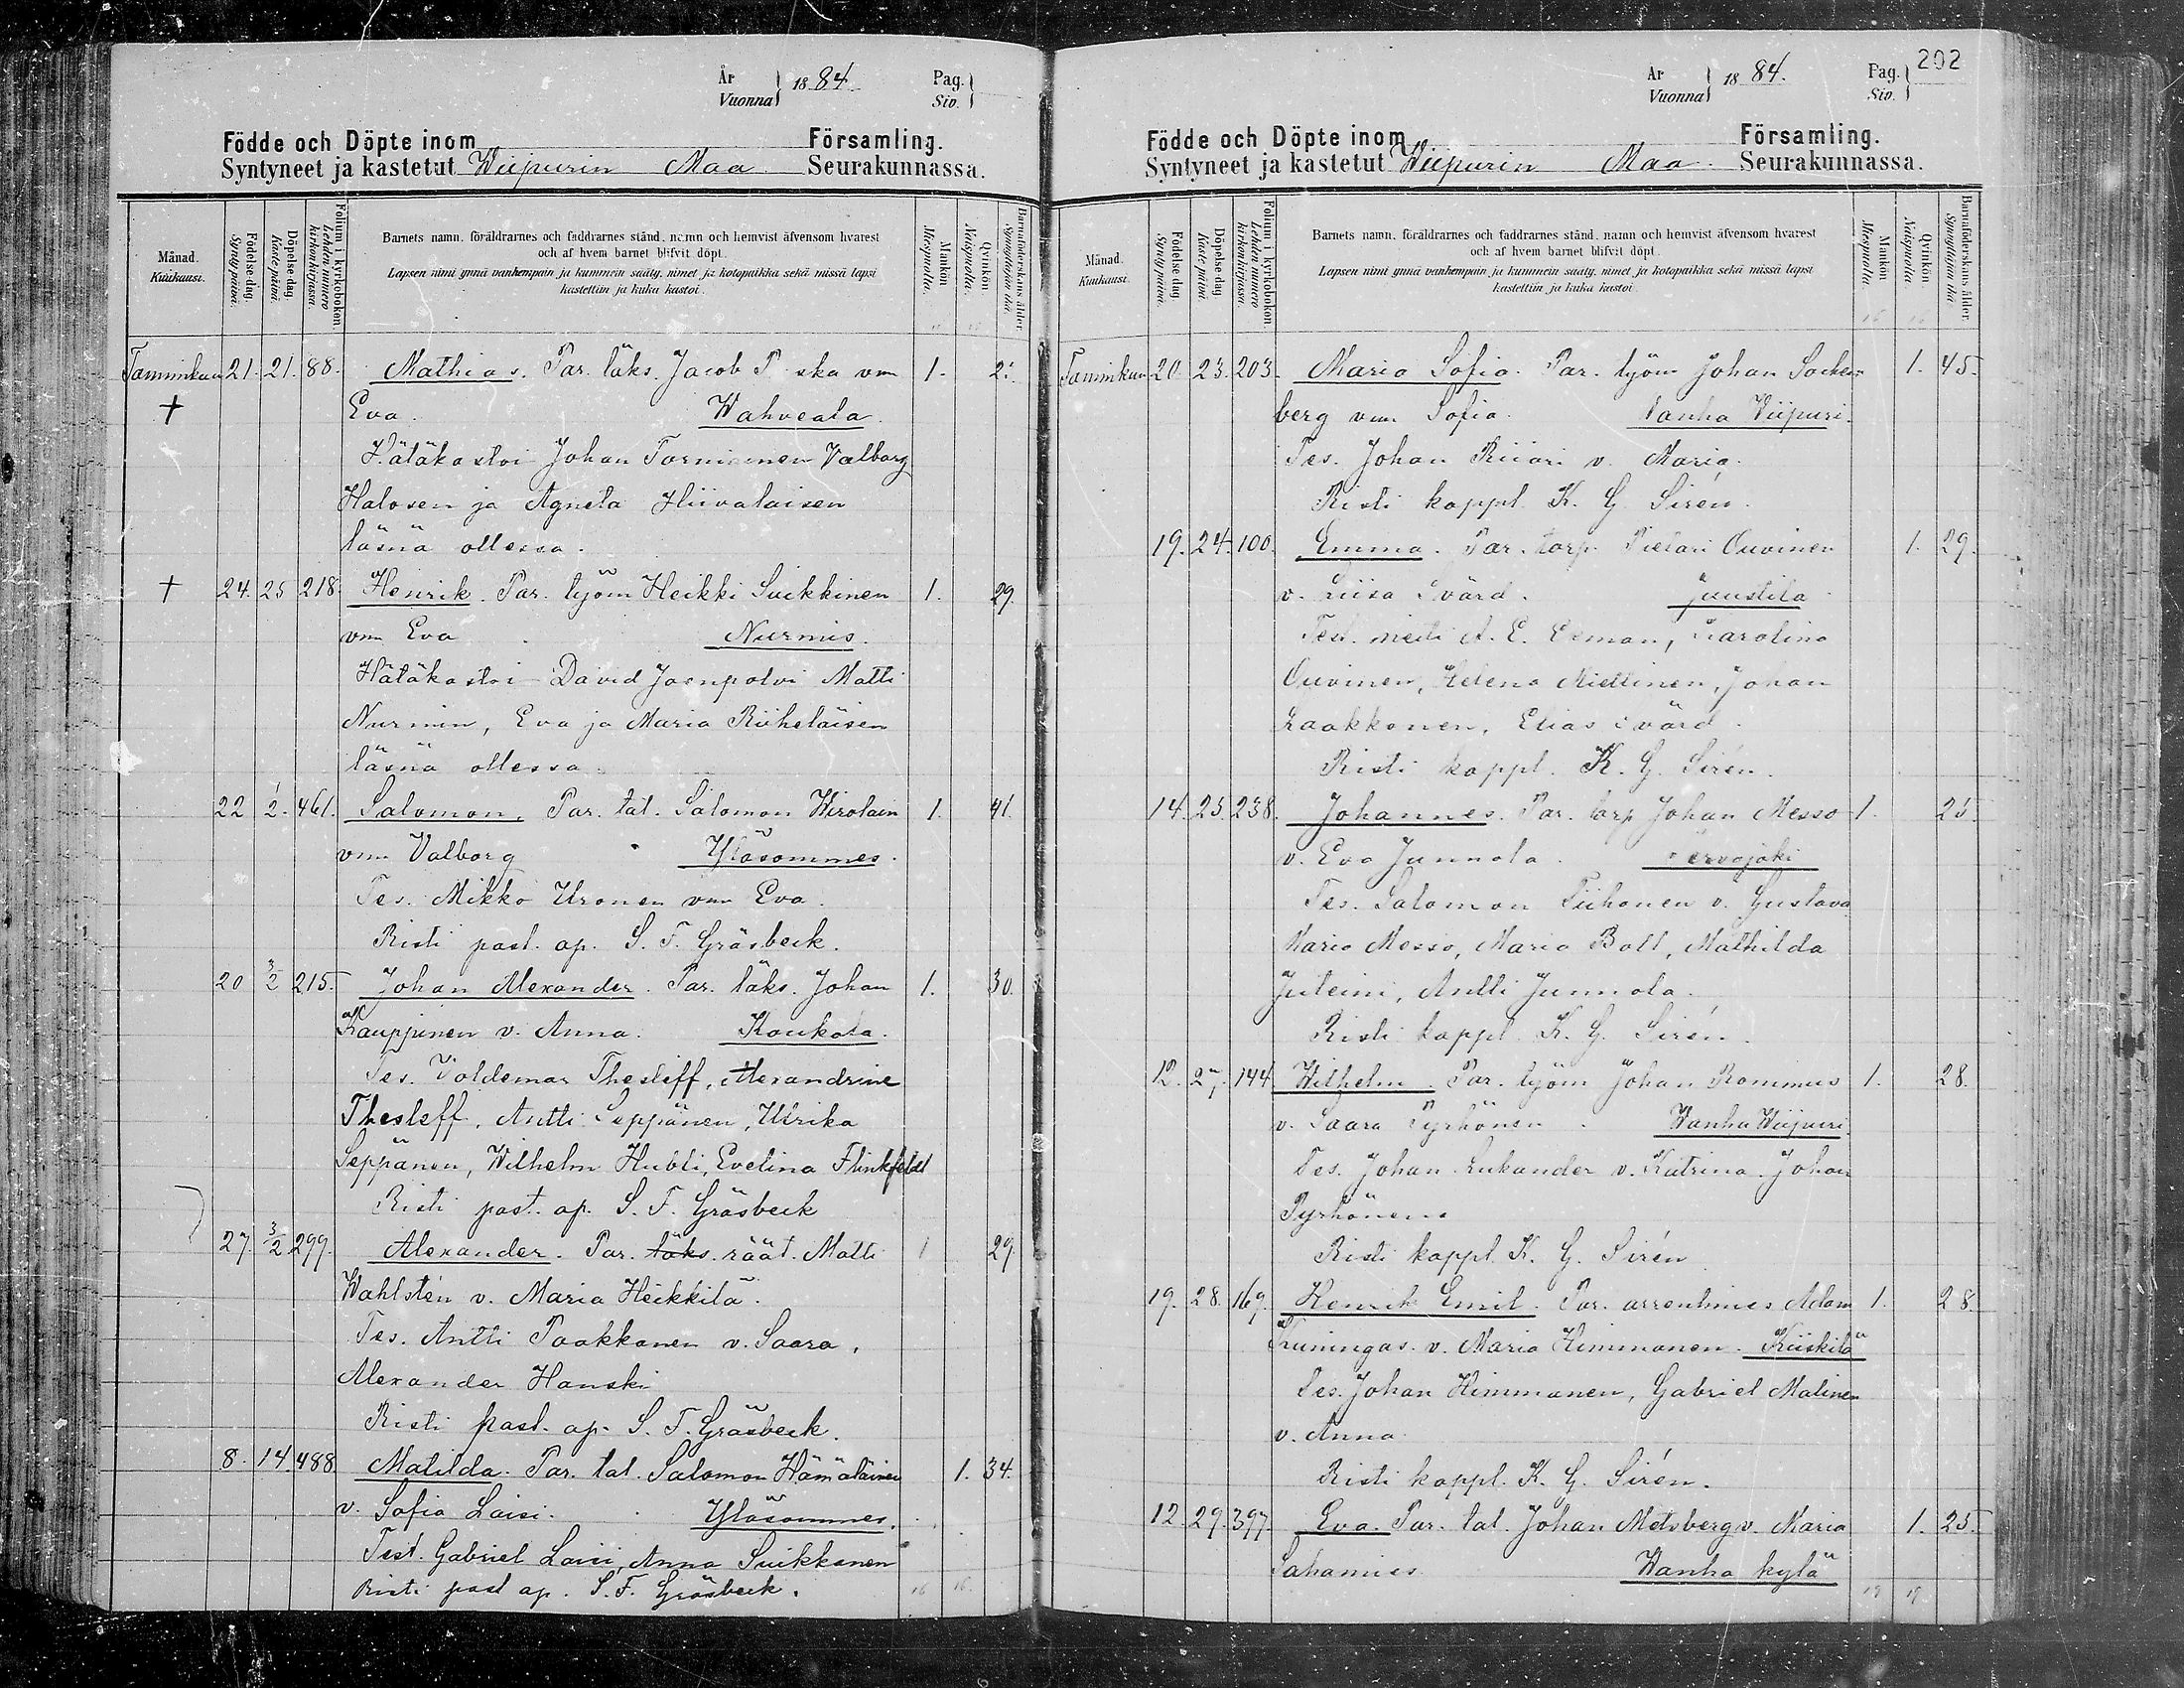 År
Vuonna } 1884. Pag.
Siv. }
Födde och Döpte inom Församling.
Syntyneet ja kastetut Wiipurin Maa Seurakunnassa.
Månad.
Kuukausi.
Födelse-dag.
Synty päivä.
Döpelse-dag.
Kaste päivä.
Folium i kyrkoboken
Lehden numero kirkonkirjassa.
Barnets namn, föräldrarnes och faddrarnes stånd, namn och hemvist äfvensom hvarest
och af hvem barnet blifvit döpt.
Lapsen nimi ynnä vanhempain ja kummein sääty, nimet ja kotopaikka sekä missä lapsi
kastettiin ja kuka kastoi.
Mankön
Miespuolia.
Qvinkön.
Naispuolia.
Barnaföderskans ålder.
Synnyttäjän ikä.
Tammikuu 21. 21. 88. Mathias. Par. läks. Jacob P ska vm 1.
† Eva. Wahveala.
Hätäkastoi Johan Torniainen Valborg
Halosen ja Agneta Hiivalaisen
läsnä ollessa.
† 24. 25 218. Henrik. Par. työm Heikki Suikkinen 1. 29.
vm Eva Nurmis.
Hätäkastoi David Joenpolvi Matti
Nurmin, Eva ja Maria Riiheläisen
läsnä ollessa
22 1/2. 461. Salomon. Par. tal. Salomon Wirolain 1. 41.
vm Valborg Yläsommes.
Tes. Mikko Uronen vm Eva.
Risti past. ap. S. F. Gräsbeck.
20 3/2 215. Johan Alexander. Par. läks. Johan 1. 30.
Kauppinen v. Anna. Koukola.
Tes. Voldemar Thesleff, Alexandrine
Thesleff, Antti Seppänen, Ulrika
Seppänen, Wilhelm Hubli, Evelina Flinkfeldt
Risti past. ap. S. F. Gräsbeck
27. 3/2 299. Alexander. Par. läks. räät. Matti 1 29
Wahlstén v. Maria Heikkilä.
Tes. Antti Paakkanen v. Saara,
Alexander Hanski
Risti past. ap. S. F. Gräsbeck.
8. 14. 488 Matilda. Par. tal. Salomon Hämäläinen 1. 34.
v. Sofia Laisi. Yläsommes.
Test. Gabriel Laisi, Anna Suikkanen
Risti past ap. S. F. Gräsbeck.
16 16
År
Vuonna } 1884. Pag.
Siv. } 202
Födde och Döpte inom Församling.
Syntyneet ja kastetut Wiipurin Maa Seurakunnassa.
Månad.
Kuukausi.
Födelse-dag.
Synty päivä.
Döpelse-dag
Kaste päivä.
Folium i kyrkoboken
Lehden numero kirkonkirjassa.
Barnets namn, föräldrarnes och faddrarnes stånd, namn och hemvist äfvensom hvarest
och af hvem barnet blifvit döpt.
Lapsen nimi ynnä vanhempain ja kummein sääty, nimet ja kotopaikka sekä missä lapsi
kastettiin ja kuka kastoi
Mankön
Miespuolia.
Qvinkön
Naispuolia.
Barnaföderskans ålder.
Synnyttäjän ikä
Tammikuu 20. 23. 203. Maria Sofia. Par. työm Johan Sachen 1. 45.
berg vm Sofia. Vanha Viipuri.
Tes. Johan Riiari v. Maria.
Risti kappl. K. G. Sirén.
19. 24. 100. Emma. Par. torp. Pietari Ouvinen 1. 29.
v. Liisa Svärd. Juustila
Test. neiti A. E. Ekman, Karolina
Ouvinen, Helena Miettinen, Johan
Laakkonen, Elias Svärd.
Risti kappl. K. G. Sirén.
14. 25. 238. Johannes. Par. torp Johan Messo 1. 25
v. Eva Junnola. Tervajoki
Tes. Salomon Tiihonen v. Gustava
Maria Messo, Maria Boll, Mathilda
Juteini, Antti Junnola.
Risti kappl. K. G. Sirén.
12. 27. 144 Wilhelm. Par. työm Johan Rommus 1. 28.
v. Saara Pyrhönen. Wanha Wiipuri.
Tes. Johan Lukander v. Katrina. Johan
Pyrhönen.
Risti kappl. K. G. Sirén
19. 28. 169. Henrik Emil. Par. arrentimies Adam 1. 28.
Kuningas v. Maria Himmanen. Kiiskilä
Tes. Johan Himmanen, Gabriel Malinen
v. Anna.
Risti kappl. K. G. Sirén.
12 29. 397. Eva. Par. tal. Johan Metsberg v. Maria 1. 25.
Sahamies Wanha kylä